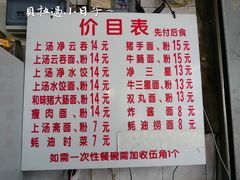 貝拉遇.小日子~
价目表 先付后食
上汤净云吞14元
上汤云吞面、粉14元
上汤净水饺14元
上汤水饺面、粉14元
和味猪大肠面、粉14元
瘦肉面、粉14元
上汤斋面、粉7元
蚝油时菜7元
猪手面、粉15元
牛腩面、粉15元
净三星13元
牛三星面、粉13元
双丸面、粉13元
炸酱面8元
蚝油捞面8元
如需一次性餐碗需加收伍角1个